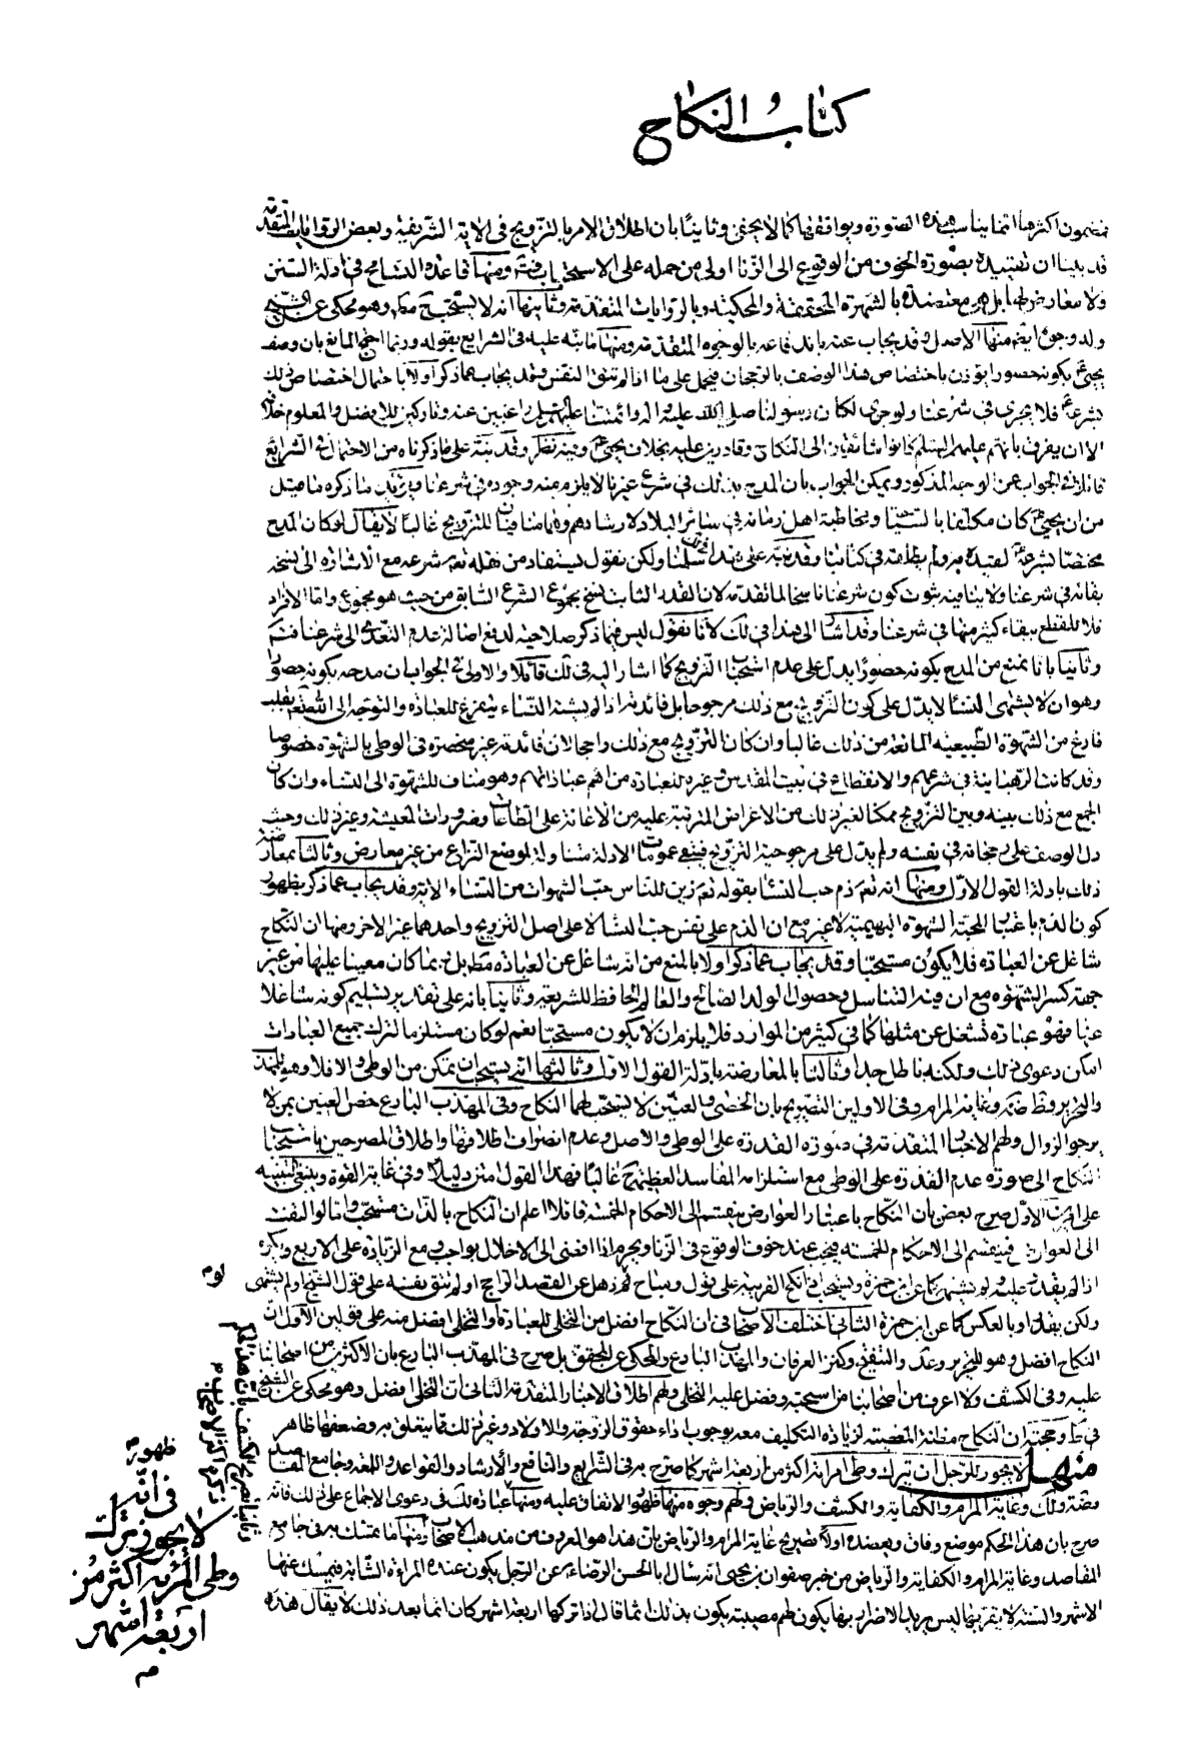 كتاب النكاح
مضمون اكثرها انما يناسب هذه الصورة ويوافقها كما لا يخفى وثانيا بان اطلاق الامر بالتزويج فى الاية الشريفة وبعض الروايات المتقدمة
قد بينا ان تقييده بصورة الخوف من الوقوع الى الزنا اولى من حمله على الاستحباب ومنها قاعدة التسامح فى ادلة السنن
ولا معارض لها بل هى معتضدة بالشهرة المحققة والمحكية وبالروايات المتقدمة وثانيها انه لا يستحب وهو محكى عن الشيخ
وله وجوه ايضا منها الاصل وقد يجاب عنه باندفاعه بالوجوه المتقدمة ومنها ما نبه عليه فى الشرايع بقوله وربما احتج المانع بان وصف
يحيى ع بكونه حصورا يؤذن باختصاص هذا الوصف بالرجحان فيحمل على ما اذا لم تتق النفس وقد يجاب عما ذكر اولا باحتمال اختصاص ذلك
بشرعه فلا يجرى فى شرعنا ولو جرى لكان رسولنا صلى الله عليه واله وائمتنا عليهم السلام راغبين عنه وتاركين للافضل والمعلوم خلافه
الا ان يفرق بانهم عليهم السلم كانوا مشتاقين الى النكاح وقادرين عليه بخلاف يحيى ع وفيه نظر وقد نبه على ما ذكرناه من الاحتمال فى الشرايع
قائلا فى الجواب عن الوجه المذكور ويمكن الجواب بان المدح بذلك فى شرع غيرنا لا يلزم منه وجوده فى شرعنا ويؤيد ما ذكره ما قيل
من ان يحيى ع كان مكلفا بالسياحة ومخاطبة اهل زمانه فى سائر البلاد لارشادهم وهما منافيان للتزويج غالبا لا يقال لو كان المدح
مختصا بشرعه لقيده به ولم يطلقه فى كتابنا وقد نبه على هذا لانا نقول سلمنا ولكن نقول يستفاد من نقله نعم شرعه مع الاشارة الى نسخه
بقائه فى شرعنا ولا ينافيه ثبوت كون شرعنا ناسخا لما تقدمه لان القدر الثابت نسخ مجموع الشرع السابق من حيث هو مجموع واما الافراد
فلا للقطع ببقاء كثير منها فى شرعنا وقد اشار الى هذا فى لك لانا نقول ليس فيما ذكر صلاحية لدفع اصالة عدم التعدى الى شرعنا فتم
وثانيا بانا نمنع من المدح بكونه حصورا يدل على عدم استحباب التزويج كما اشار اليه فى لك قائلا والاولى فى الجواب ان مدحه بكونه حصورا
وهو ان لا يشتهى النساء لا يدل على كون التزويج مع ذلك مرجوحا بل فائدته اذا لم يشته النساء يتفرغ للعبادة والتوجه الى الله تعم بقلب
فارغ من الشهوة الطبيعية المانعة من ذلك غالبا وان كان التزويج مع ذلك راجحا لان فائدته غير منحصرة فى الوطى بالشهوة خصوصا
وقد كانت الرهبانية فى شرعهم والانقطاع فى بيت المقدس وغيره للعبادة من اهم عباداتهم وهو مناف للشهوة الى النساء وان كان
الجمع مع ذلك بينه وبين التزويج ممكنا لغير ذلك من الاغراض المترتبة عليه من الاعانة على الطاعات وضرورات المعيشة وغير ذلك وحيث
دل الوصف على رجحانه فى نفسه ولم يدل على مرجوحية التزويج فيبقى عمومات الادلة متناولة لموضع النزاع من غير معارض وثالثا بمعارضة
ذلك بادلة القول الاول ومنها انه تعم ذم حب النساء بقوله تعم زين للناس حب الشهوات من النساء الاية وقد يجاب عما ذكر بظهور
كون الذم باعتبار المحبة الشهوة البهيمية لا غير مع ان الذم على نفس حب النساء لا على اصل التزويج واحدهما غير الاخر ومنها ان النكاح
شاغل عن العبادة فلا يكون مستحبا وقد يجاب عما ذكر اولا بالمنع من انه شاغل عن العبادة مطلقا بل ربما كان معينا عليها من غير
جهة كسر الشهوة مع ان فيه التناسل وحصول الولد الصالح والعالم الحافظ للشريعة وثانيا بانه على تقدير تسليم كونه شاغلا
عنها فهو عبادة تشغل عن مثلها كما فى كثير من الموارد فلا يلزم ان لا يكون مستحبا نعم لو كان مستلزما لترك جميع العبادات
امكن دعوى ذلك ولكنه باطل جدا وثالثا بالمعارضة بادلة القول الاول وثالثها انه يستحب ان يمكن من الوطى والا فلا وهو للمهذب
والتحرير وظ ضه وغاية المرام وفى الاولين التصريح بان الخصى والعنين لا يستحب لهما النكاح وفى المهذب البارع خص العنين بمن لا
يرجو الزوال ولهم الاخبار المتقدمة فى صورة القدرة على الوطى والاصل وعدم انصراف اطلاقها واطلاق المصرحين باستحباب
النكاح الى صورة عدم القدرة على الوطى مع استلزامه المفاسد العظيمة غالبا فهذا القول امتن دليلا وفى غاية القوة وينبغى التنبيه
على امور الاول صرح بعض بان النكاح باعتبار العوارض ينقسم الى الاحكام الخمسة قائلا اعلم ان النكاح بالذات مستحب واما لو التفت
الى العوارض فينقسم الى الاحكام الخمسة فيجب عند خوف الوقوع فى الزنا ويحرم اذا افضى الى الاخلال بواجب ومع الزيادة على الاربع ويكره
اذا لم يقدر عليه ولم يشتهى كما عن ابن حمزة ويستحب انكاح القريبة على قول ويباح لو ذهل عن القصد الراجح او لم تتق نفسه على قول الشيخ ولم يشتهى
ولكن يقدر او بالعكس كما عن ابن حمزة الثانى اختلف الاصحاب فى ان النكاح افضل من التخلى للعبادة او التخلى افضل منه على قولين الاول ان
النكاح افضل وهو للتحرير وعد والتنقيح وكنز العرفان والمهذب البارع والمحكى عن المحقق بل صرح فى المهذب البارع بان الاكثر من اصحابنا
عليه وفى الكشف ولا اعرف من اصحابنا من سبحته وفضل عليه التخلى ولهم اطلاق الاخبار المتقدمة الثانى ان التخلى افضل وهو محكى عن الشيخ
فى ط وحجته ان النكاح مظنة المعصية لزيادة التكليف معه بوجوب اداء حقوق الزوجة والاولاد وغير ذلك مما يتعلق به وضعفها ظاهر
منهل لا يجوز للرجل ان يترك وطى امراته اكثر من اربعة اشهر كما صرح به فى الشرايع والنافع والارشاد والقواعد واللمعة وجامع المقاصد
وضة ولك وغاية المرام والكفاية والكشف والرياض ولهم وجوه منها ظهور الاتفاق عليه ومنها عبادة لك فى دعوى الاجماع على ذلك فانه
صرح بان هذا الحكم موضع وفاق ويعضده اولا تصريح غاية المرام والرياض بان هذا هو المعروف من مذهب الاصحاب ومنها ما تمسك به فى جامع
المقاصد وغاية المرام والكفاية والرياض من خبر صفوان بن يحيى انه سال ابا الحسن الرضا ع عن الرجل يكون عنده المراة الشابة فيمسك عنها
الاشهر والسنة لا يقربها ليس يريد الاضرار بها يكون لهم مصيبة يكون بذلك اثما قال اذا تركها اربعة اشهر كان اثما بعد ذلك لا يقال هذه
ظهور
فى انه
لا يجوز ترك
وطى المرئة اكثر من
اربعة اشهر